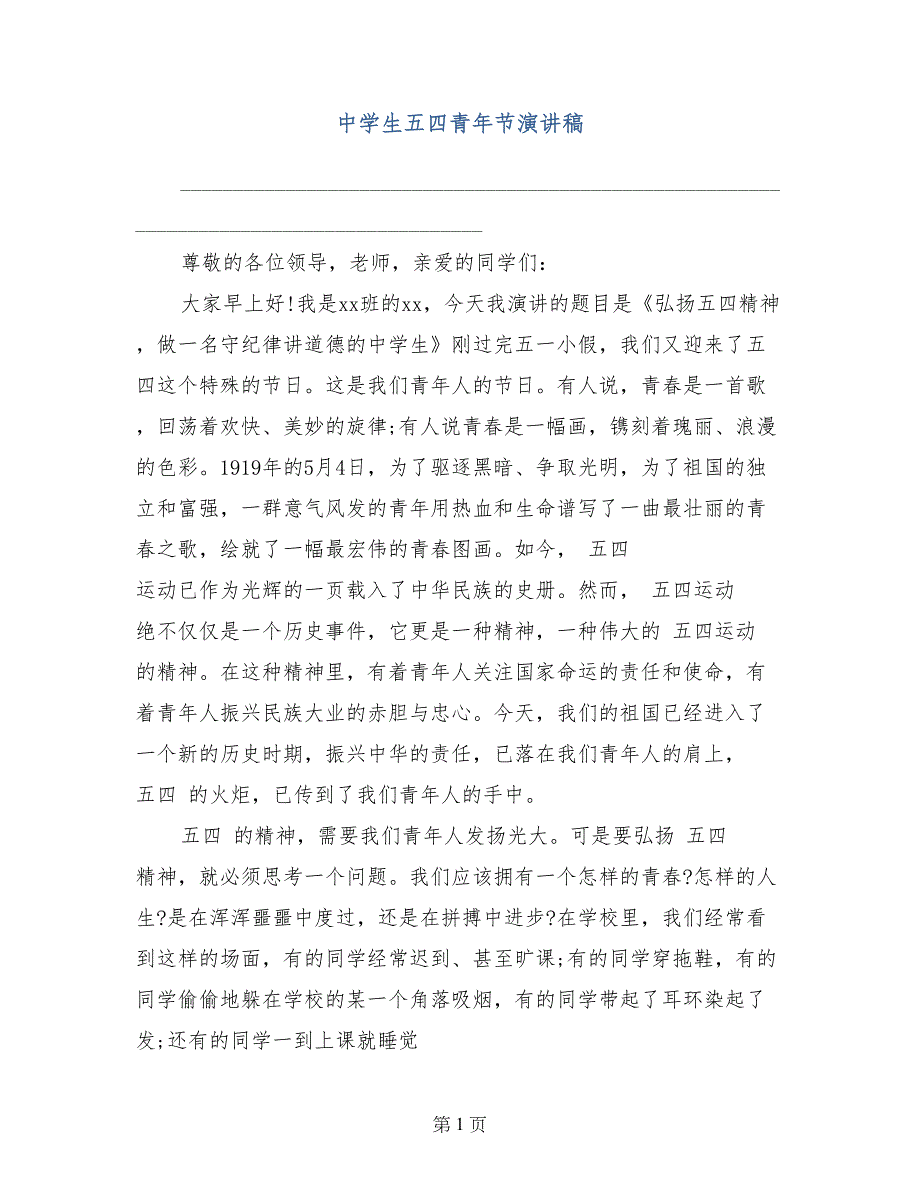 中学生五四青年节演讲稿
_________________________________________________________
_________________________________
尊敬的各位领导，老师，亲爱的同学们：
大家早上好!我是xx班的xx，今天我演讲的题目是《弘扬五四精神
，做一名守纪律讲道德的中学生》刚过完五一小假，我们又迎来了五
四这个特殊的节日。这是我们青年人的节日。有人说，青春是一首歌
，回荡着欢快、美妙的旋律;有人说青春是一幅画，镌刻着瑰丽、浪漫
的色彩。1919年的5月4日，为了驱逐黑暗、争取光明，为了祖国的独
立和富强，一群意气风发的青年用热血和生命谱写了一曲最壮丽的青
春之歌，绘就了一幅最宏伟的青春图画。如今， 五四
运动已作为光辉的一页载入了中华民族的史册。然而， 五四运动
绝不仅仅是一个历史事件，它更是一种精神，一种伟大的 五四运动
的精神。在这种精神里，有着青年人关注国家命运的责任和使命，有
着青年人振兴民族大业的赤胆与忠心。今天，我们的祖国已经进入了
一个新的历史时期，振兴中华的责任，已落在我们青年人的肩上，
五四 的火炬，已传到了我们青年人的手中。
五四 的精神，需要我们青年人发扬光大。可是要弘扬 五四
精神，就必须思考一个问题。我们应该拥有一个怎样的青春?怎样的人
生?是在浑浑噩噩中度过，还是在拼搏中进步?在学校里，我们经常看
到这样的场面，有的同学经常迟到、甚至旷课;有的同学穿拖鞋，有的
同学偷偷地躲在学校的某一个角落吸烟，有的同学带起了耳环染起了
发;还有的同学一到上课就睡觉
第 1 页